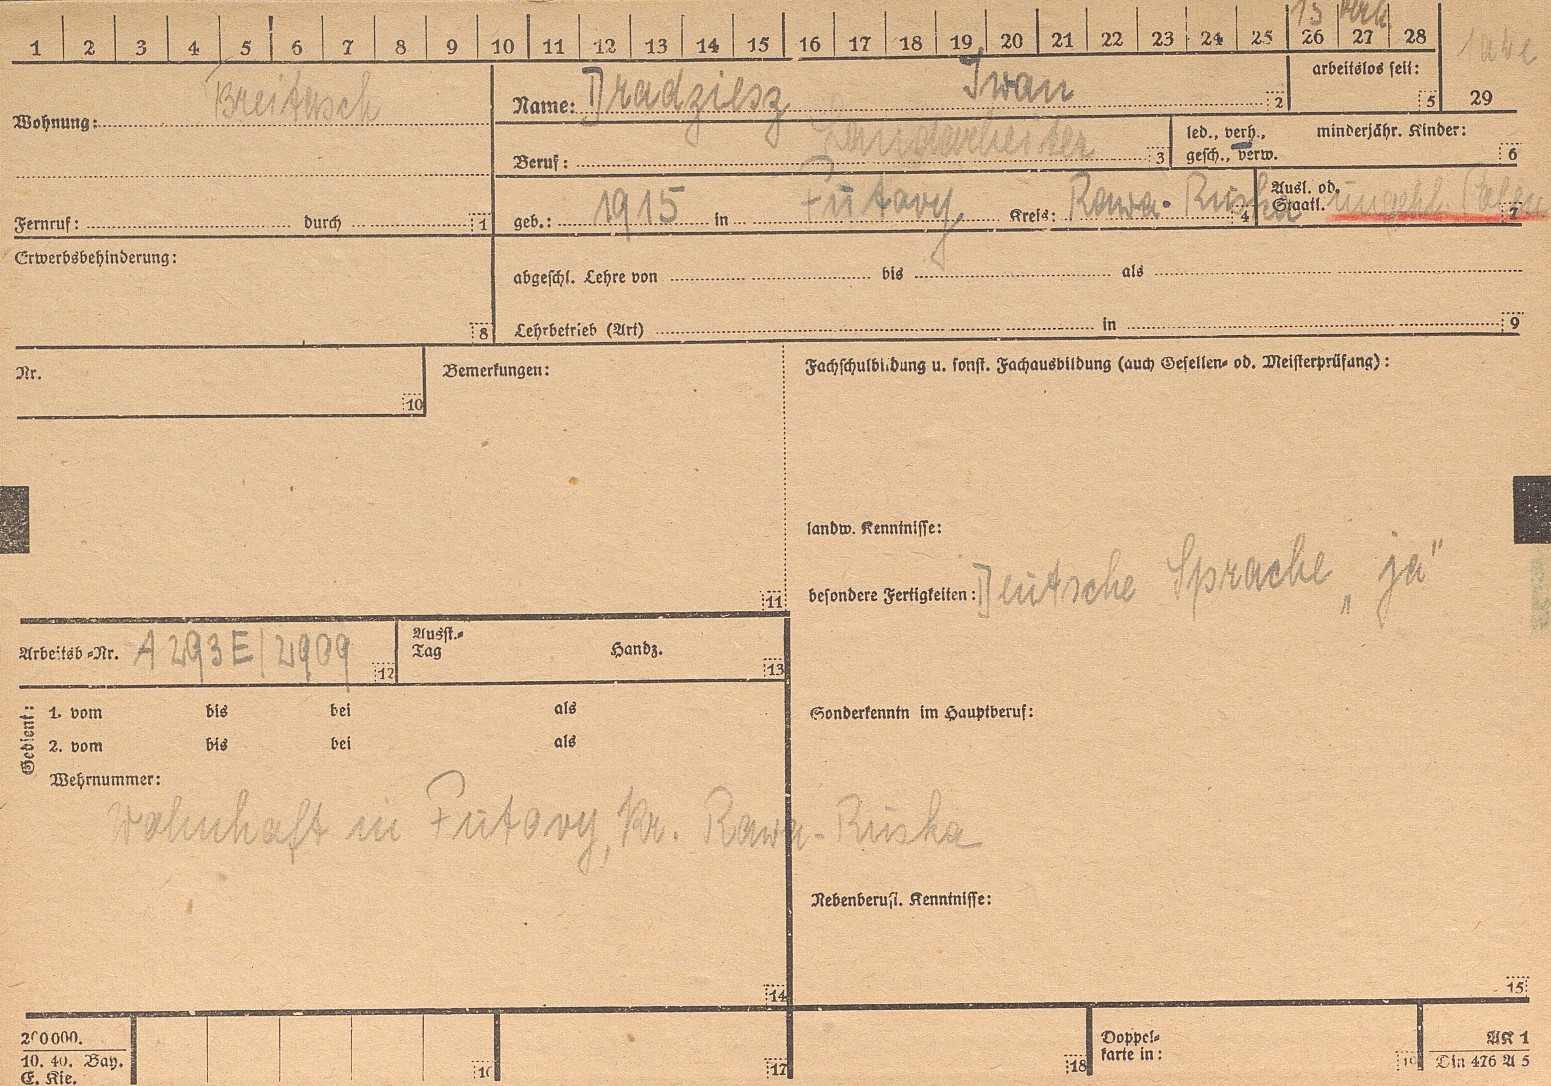 1 2 3 4 5 6 7 8 9 10 11 12 13 14 15 16 17 18 19 20 21 22 23 24 25 26 27 28
13
Wohnung: Breitasch
Name: Dradziesz Iwan 2
arbeitslos seit: 5
29
Beruf: Landarbeiter 3
led., verh., minderjähr. Kinder:
gesch., verw. 6
Fernruf: durch 1
geb.: 1915 in Futory, Kreis: Rawa-Ruska 4
Ausl. od.
Staatl. ungekl. Polen 7
Erwerbsbehinderung: 8
abgeschl. Lehre von bis als
Lehrbetrieb (Art) in 9
Nr. 10
Bemerkungen: 11
Fachschulbildung u. sonst. Fachausbildung (auch Gesellen- od. Meisterprüfung):
landw. Kenntnisse:
besondere Fertigkeiten: Deutsche Sprache „ja"
Arbeitsb-Nr. A 293E/2909 12
Ausst.-
Tag Handz. 13
Gedient:
1. vom bis bei als
2. vom bis bei als
Wehrnummer:
Sonderkenntn im Hauptberuf:
wohnhaft in Futory, Kr. Rawa-Ruska
Nebenberufl. Kenntnisse:
14
15
200000.
10. 40. Bay.
E. Kie.
16
17
18
Doppel-
karte in: 19
AK 1
Din 476 A 5